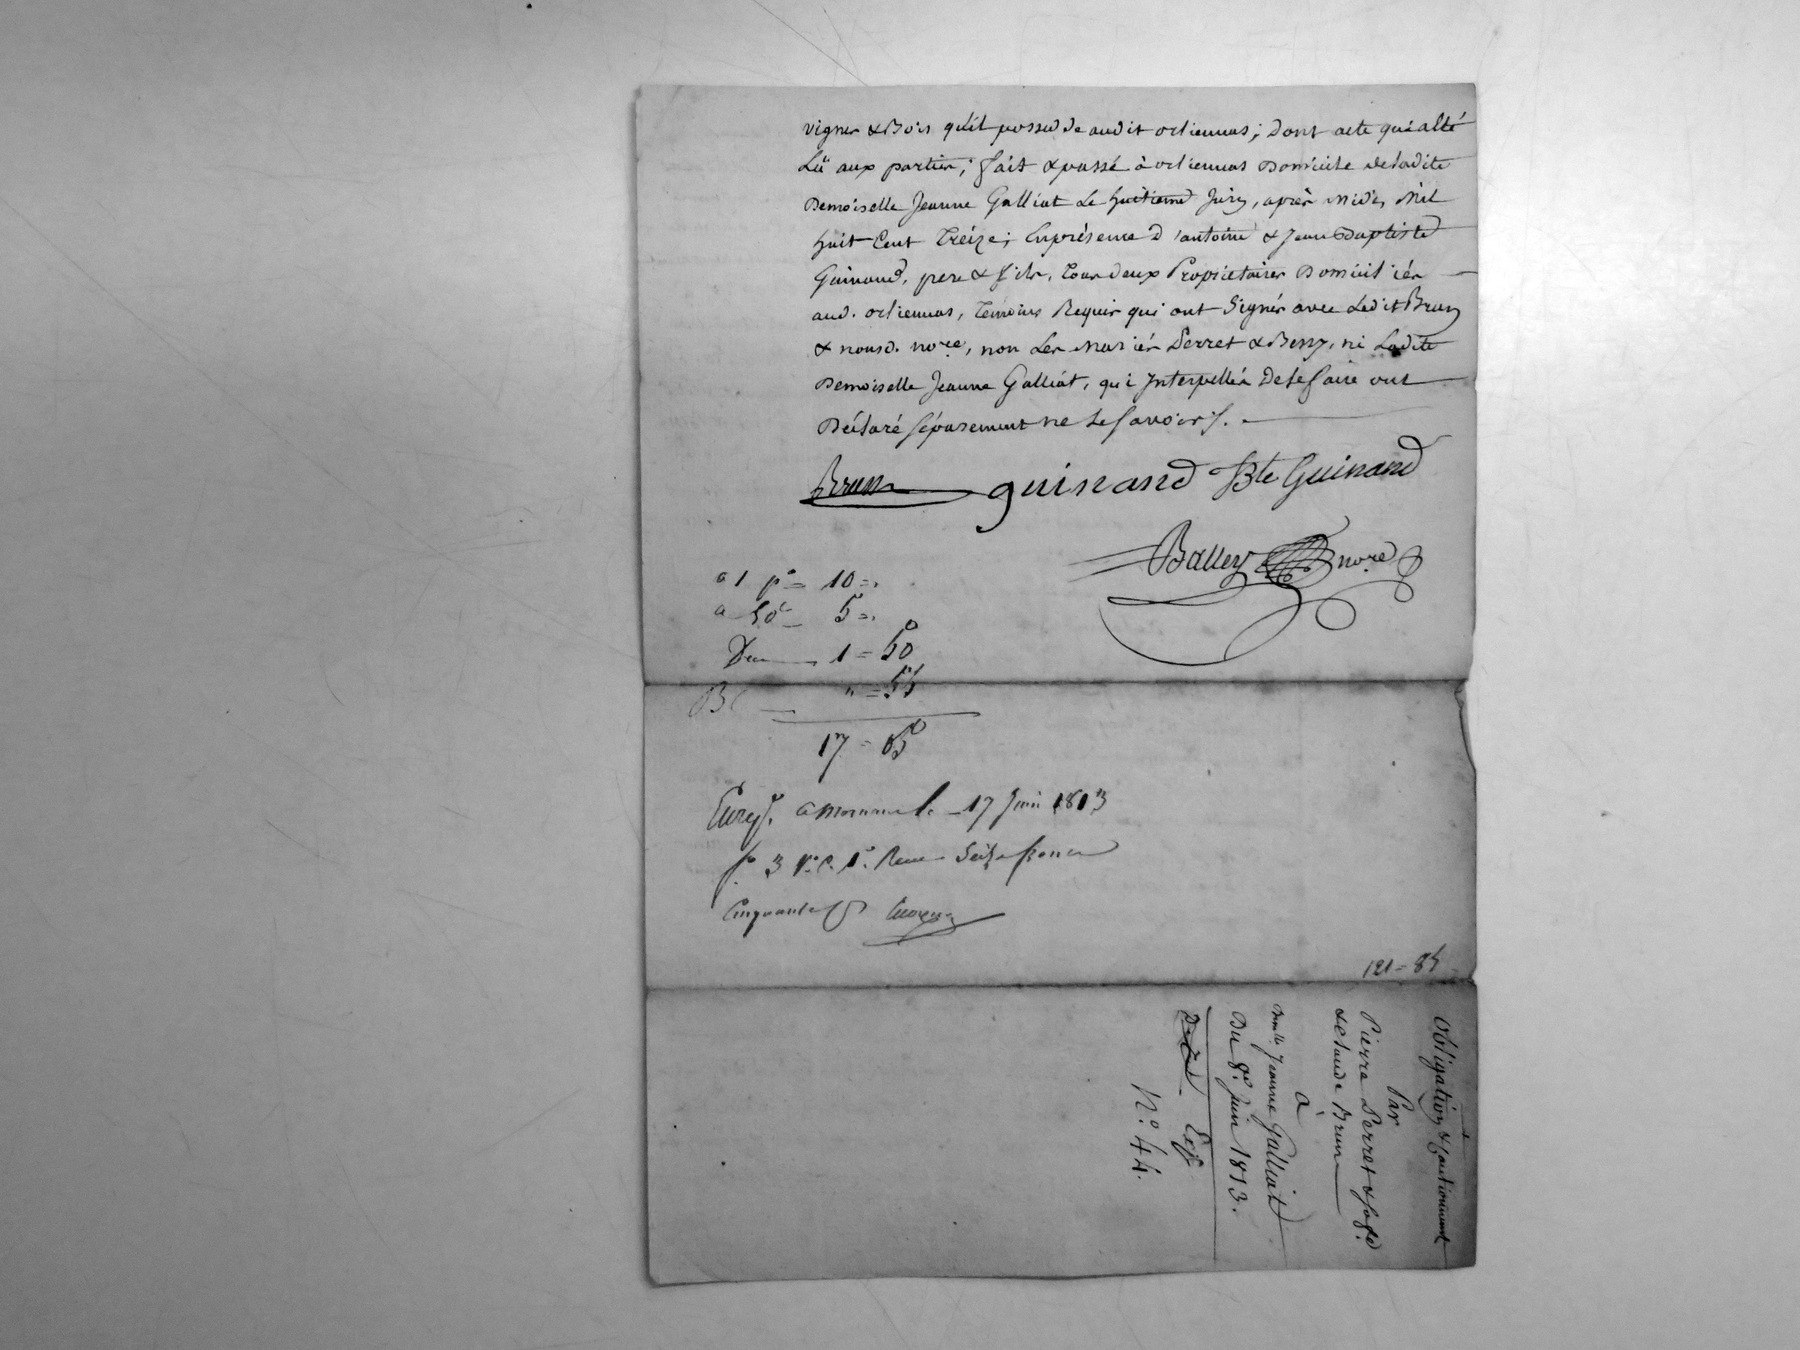 vignes & Bois qu'il possede audit orliennas; Dont acte qui a été
Lü aux parties; fait & passé à orliennas Domicile de ladite
Demoiselle Jeanne Galliat Le huitieme Juin, après midi, Mil
huit Cent Treize; En présence d'antoine & Jean Baptiste
Guinand, pere & fils, tous deux Propriétaires Domiciliés
aud. orliennas, Témoins Requis qui ont Signés avec Ledit Brun
& nousd. nore, non Les mariés Perret & Beny, ni Ladite
Demoiselle Jeanne Galliat, qui Interpellés De le faire ont
Déclaré séparement ne le savoir.
Brun guinand Bte Guinand
Balley nore
a 1 p% = 10 =
a 50c 5 =
1 = 50
" = 55
17 = 05
Enregt. a mornant le 17 Juin 1813
fo 3 vo c. 1o. Recu Seize francs
Cinquante
121 = 85
Obligation & Cautionnement
Par
Pierre Perret & sa fe
& Claude Brun
à
Dmlle Jeanne Galliat
Du 8e. Juin 1813.
Exp.
No. 44.